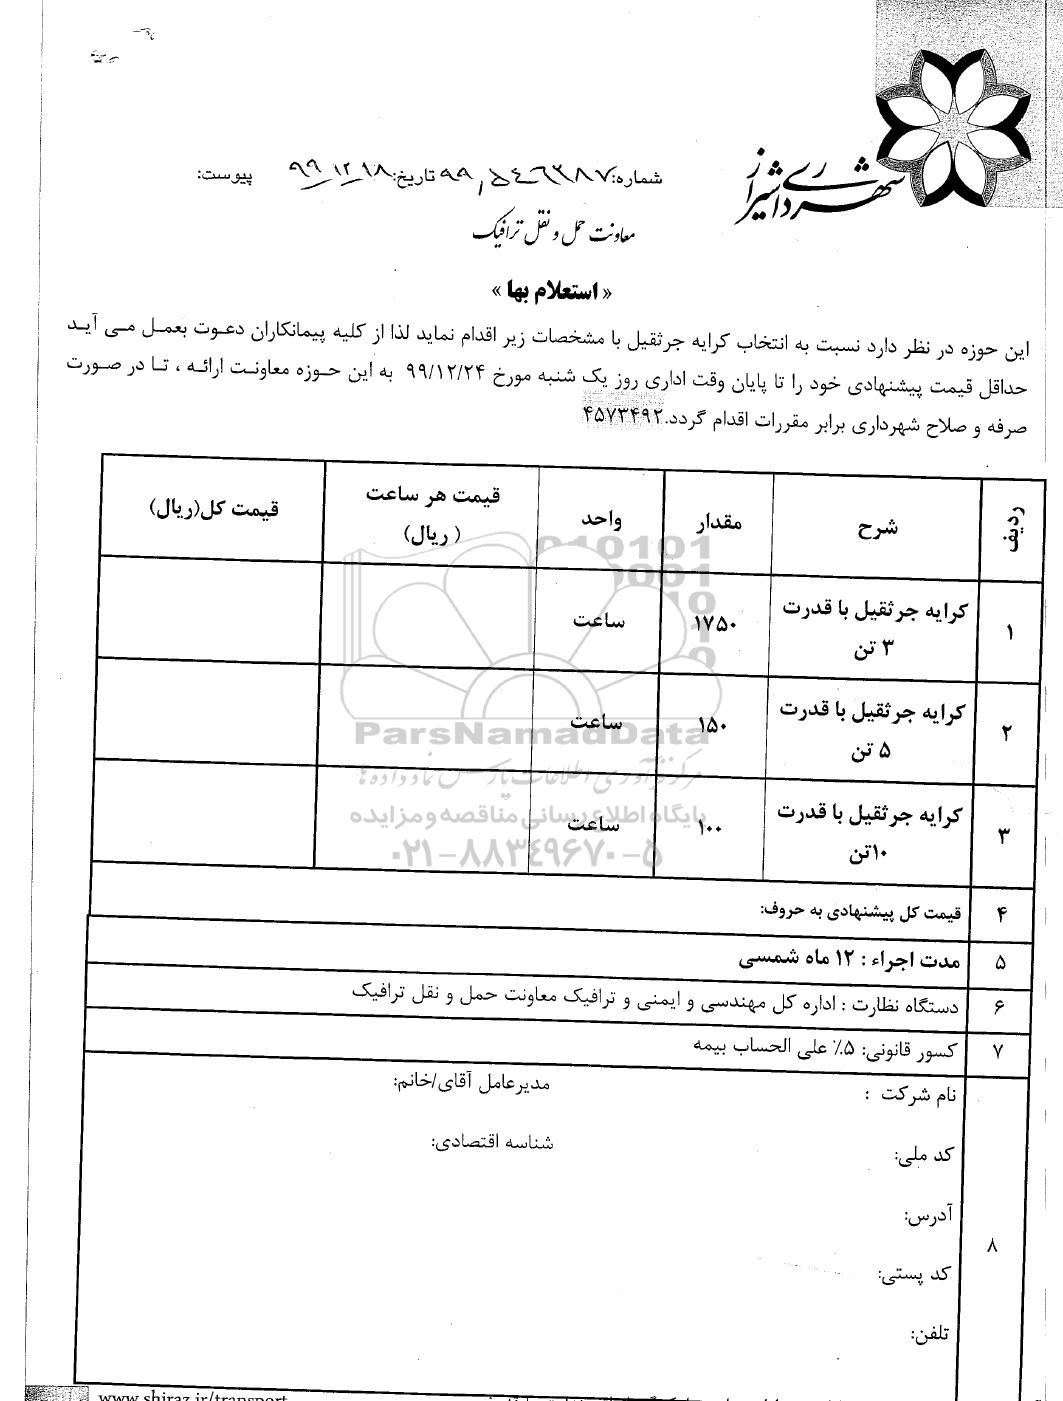 شهرداری شیراز
شماره: ۹۹٫۵۴۶۳۸۷ تاریخ: ۹۹_۱۲_۱۸ پیوست:
معاونت حمل و نقل ترافیک
« استعلام بها »
این حوزه در نظر دارد نسبت به انتخاب کرایه جرثقیل با مشخصات زیر اقدام نماید لذا از کلیه پیمانکاران دعوت بعمل می آید
حداقل قیمت پیشنهادی خود را تا پایان وقت اداری روز یک شنبه مورخ ۹۹/۱۲/۲۴ به این حوزه معاونت ارائه ، تا در صورت
صرفه و صلاح شهرداری برابر مقررات اقدام گردد.۴۵۷۳۴۹۲
ردیف شرح مقدار واحد قیمت هر ساعت قیمت کل(ریال)
( ریال)
۱ کرایه جرثقیل با قدرت ۱۷۵۰ ساعت
۳ تن
۲ کرایه جرثقیل با قدرت ۱۵۰ ساعت
۵ تن
۳ کرایه جرثقیل با قدرت ۱۰۰ ساعت
۱۰تن
ParsNamadData
مرکز فرآوری اطلاعات پارس نماد داده ها
پایگاه اطلاع رسانی مناقصه و مزایده
۰۲۱-۸۸۳۴۹۶۷۰-۵
۴ قیمت کل پیشنهادی به حروف:
۵ مدت اجراء : ۱۲ ماه شمسی
۶ دستگاه نظارت : اداره کل مهندسی و ایمنی و ترافیک معاونت حمل و نقل ترافیک
۷ کسور قانونی: ۵٪ علی الحساب بیمه
۸ نام شرکت : مدیرعامل آقای/خانم:
کد ملی: شناسه اقتصادی:
آدرس:
کد پستی:
تلفن:
www.shiraz.ir/transport